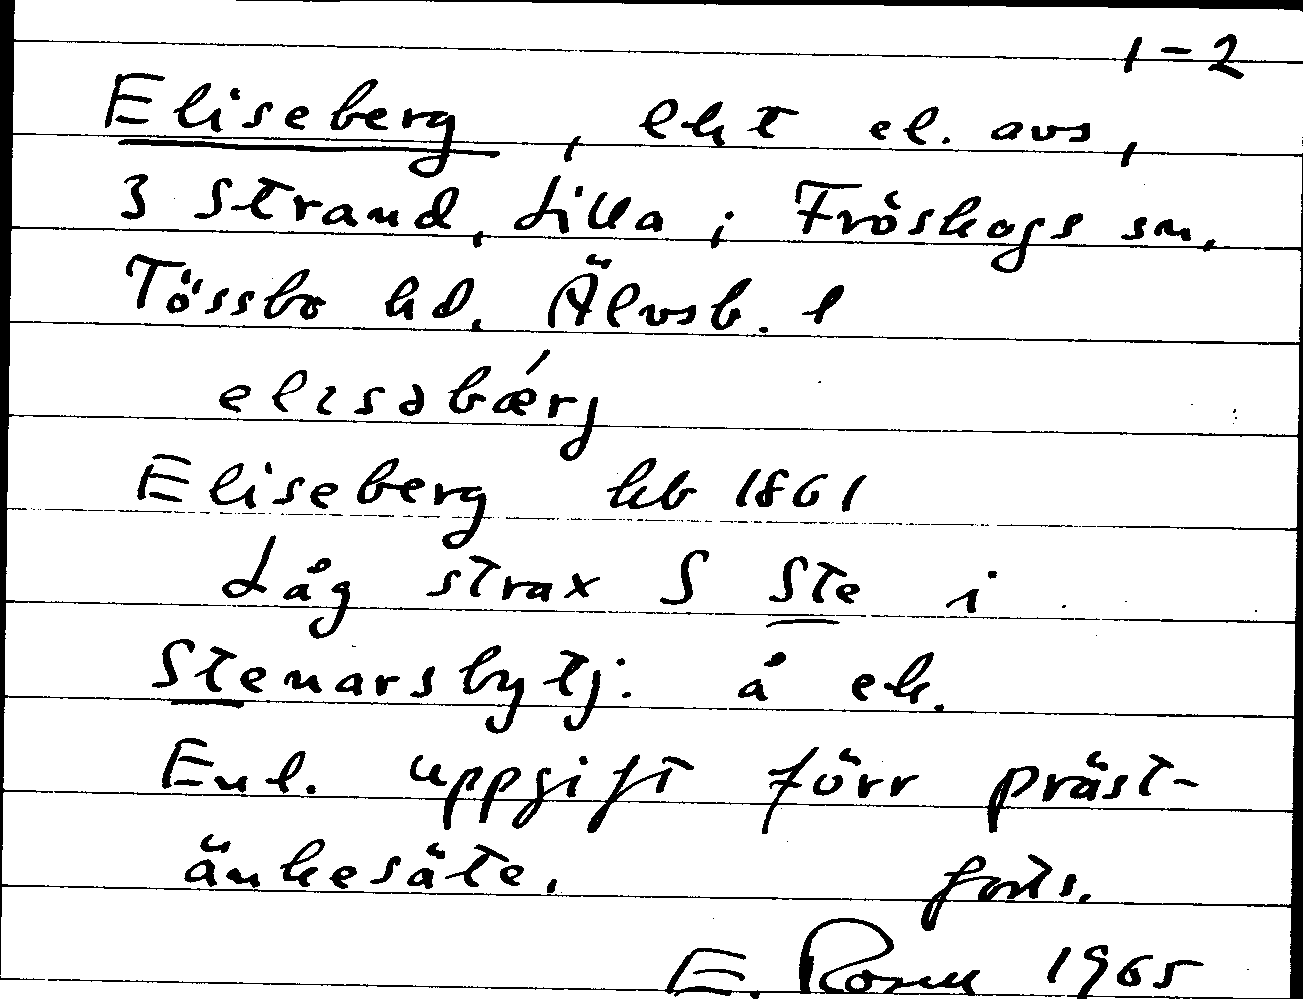 1-2
Eliseberg, lht el. avs,
3 Strand, Lilla; Fröskogs sn,
Tössbo hd, Älvsb. l
elisəbǽrj
Eliseberg hb 1861
Låg strax S Ste i
Stenarsbytj. å ek.
Enl. uppgift förr präst-
änkesäte. forts.
E. Rosell 1965